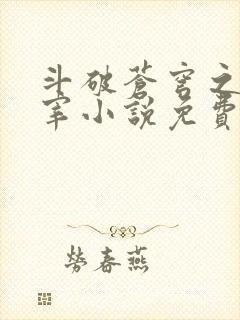 斗破蒼穹之
宰小說免費
勞春燕